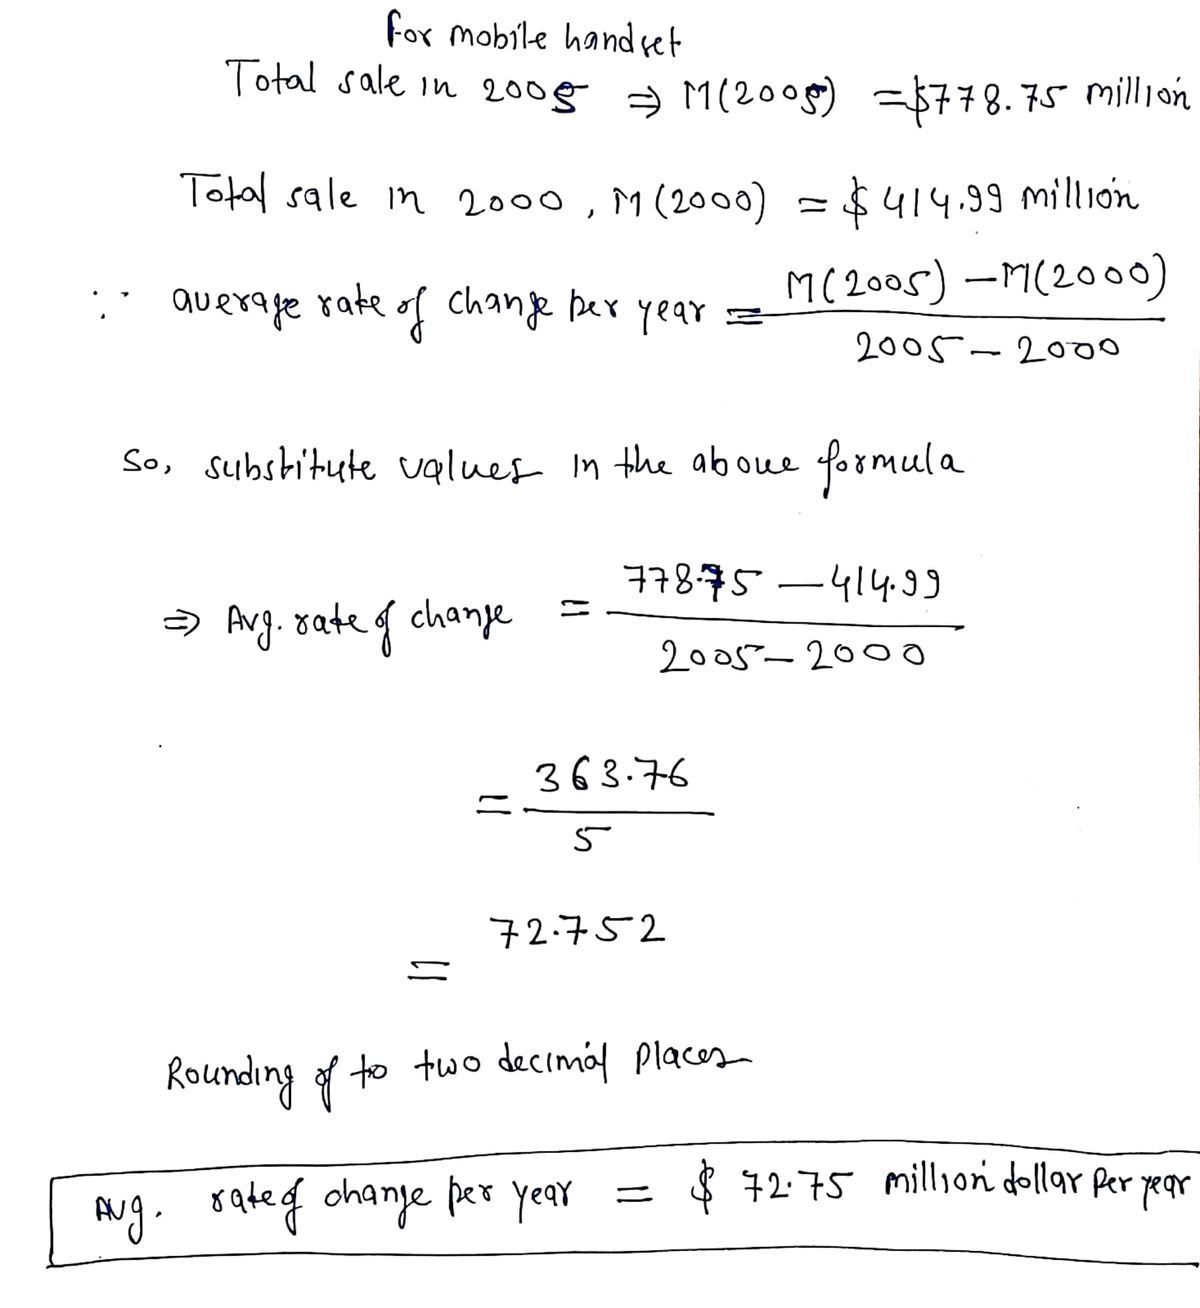 for mobile handset
Total sale in 2005 ⇒ M(2005) = $778.75 million
Total sale in 2000, M(2000) = $414.99 million
∵ average rate of change per year = M(2005) − M(2000)
2005 − 2000
So, substitute values in the above formula
⇒ Avg. rate of change = 778.75 − 414.99
2005 − 2000
= 363.76
5
= 72.752
Rounding of to two decimal places
Avg. rate of change per year = $ 72.75 million dollar per year